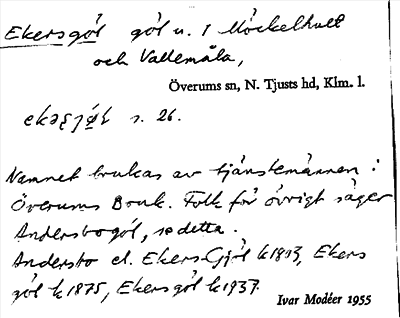 Ekersgöl göl u. f Möckelhult
och Vallemåla,
Överums sn, N. Tjusts hd, Klm. l.
s. 26.
Namnet brukas av tjänstemännen i
Överums Bruk. Folk för övrigt säger
Andersbogöl, se detta.
Andersbo el. Ekers-Gjöl k 1813, Ekers
göl k 1875, Ekersgöl k 1937.
Ivar Modéer 1955